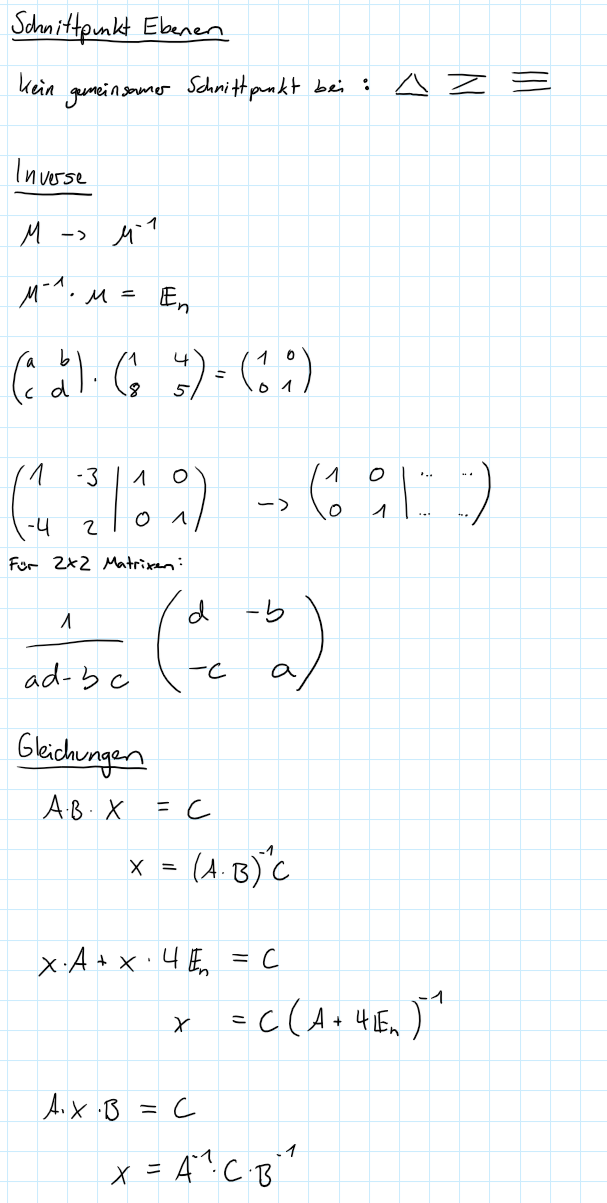 Schnittpunkt Ebenen
kein gemeinsamer Schnittpunkt bei :
Inverse
M -> M⁻¹
M⁻¹ · M = Eₙ
(a b; c d) · (1 4; 8 5) = (1 0; 0 1)
(1 -3 | 1 0; -4 2 | 0 1) -> (1 0 | ... ...; 0 1 | ... ...)
Für 2x2 Matrixen:
1/(ad-bc) (d -b; -c a)
Gleichungen
A·B·X = C
X = (A·B)⁻¹C
X·A + X·4Eₙ = C
X = C(A + 4Eₙ)⁻¹
A·X·B = C
X = A⁻¹·C·B⁻¹